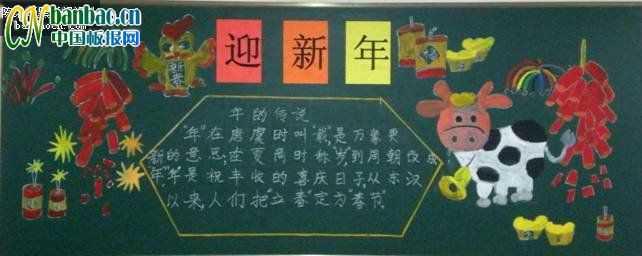 CN banbao.cn
中国板报网
迎新年
年的传说
"年"在唐虞时叫"载",是万象更
新的意思,在夏周时称"岁"到周朝改成
年,"年"是祝丰收的喜庆日子,从东汉
以来,人们把"立春"定为"春节"